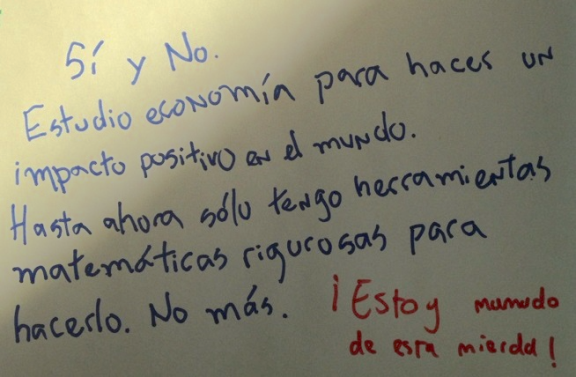 Sí y No.
Estudio economía para hacer un
impacto positivo en el mundo.
Hasta ahora sólo tengo herramientas
matemáticas rigurosas para
hacerlo. No más.
¡Estoy mamado
de esta mierda!